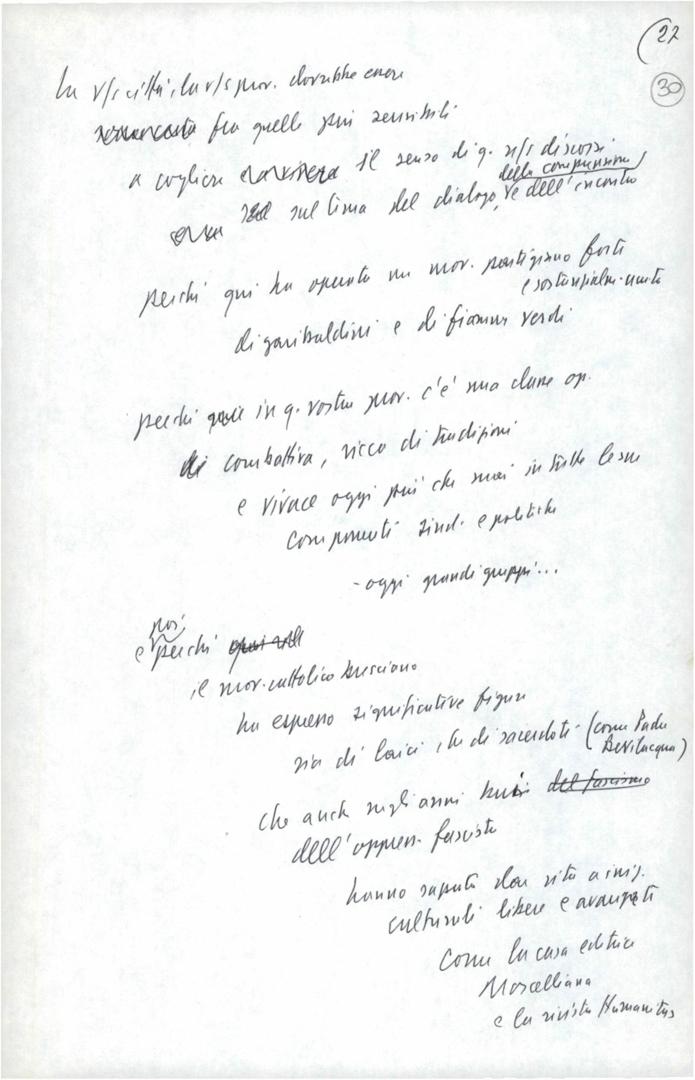 (27
30
La v/s città, la v/s prov. dovrebbe essere
fra quelle più sensibili
a cogliere il senso di q. n/s discorsi
della comprensione
sul tema del dialogo, e dell'incontro
perchi qui ha operato un mov. partigiano forte
e sostanzialm. unito
di garibaldini e di fiamme verdi
perchi in q. vostra prov. c'è una classe op.
combattiva, ricca di tradizioni
e vivace oggi più che mai in tutte le sue
componenti sind. e politiche
- oggi grandi gruppi...
poi
e perchi
il mov. cattolico bresciano
ha espresso significative figure
sia di laici, che di sacerdoti - (come Padre
Bevilacqua)
che anche negli anni bui del fascismo
dell'oppress. fascista
hanno saputo dar vita a iniz.
culturali libere e avanzate
come la casa editrice
Morcelliana
e la rivista Humanitas